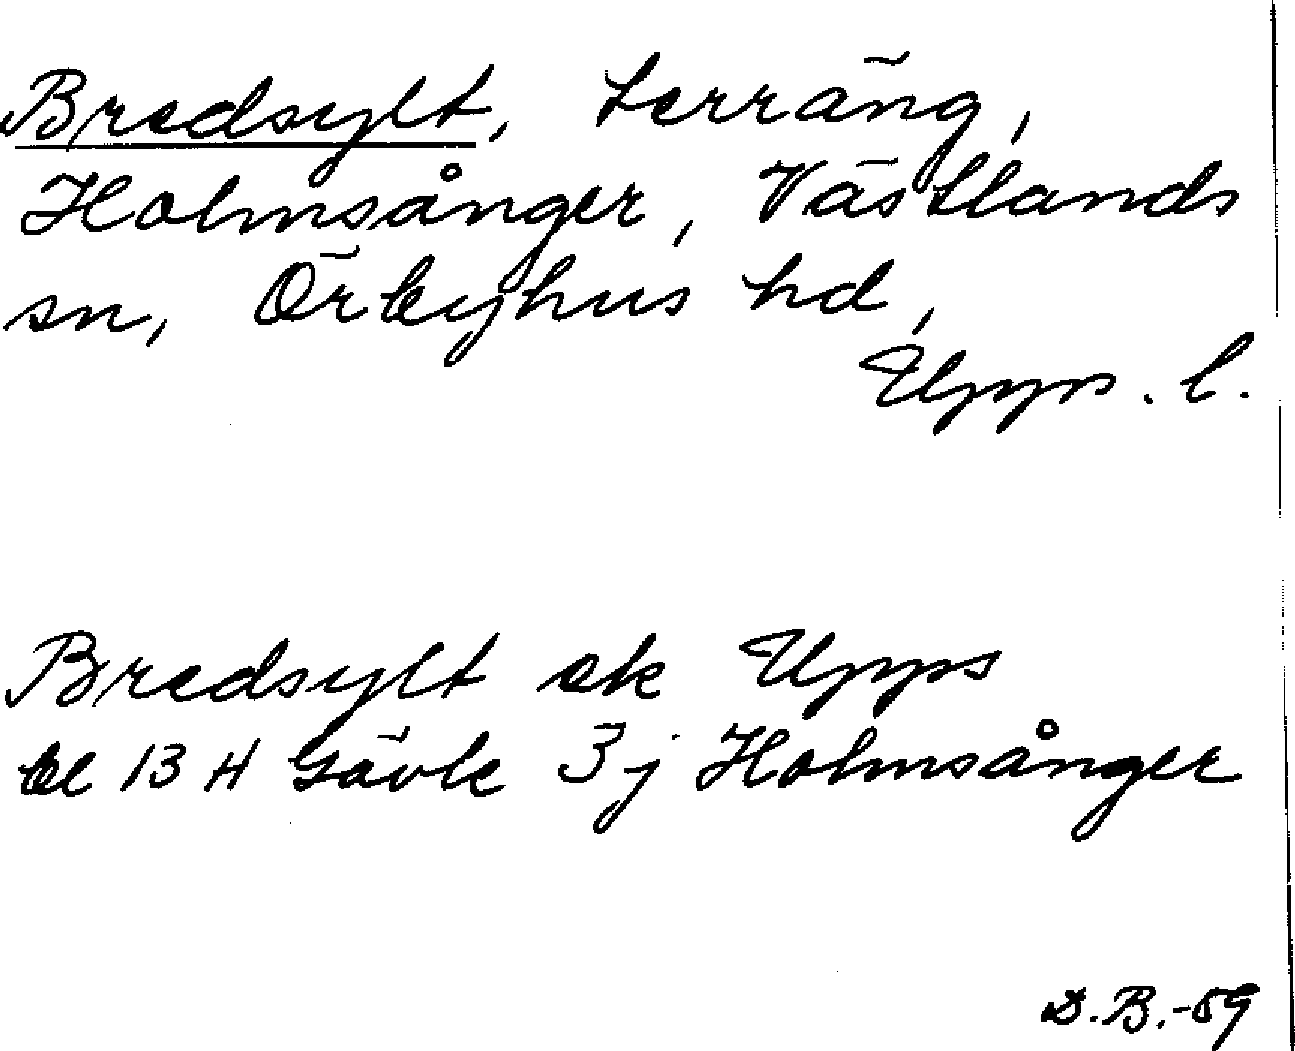 Bredsylt, terräng,
Holmsånger, Västlands
sn, Örbyhus hd,
Upps. l.
Bredsylt ek Upps
bl 13 H Gävle 3j Holmsånger
D.B.-59